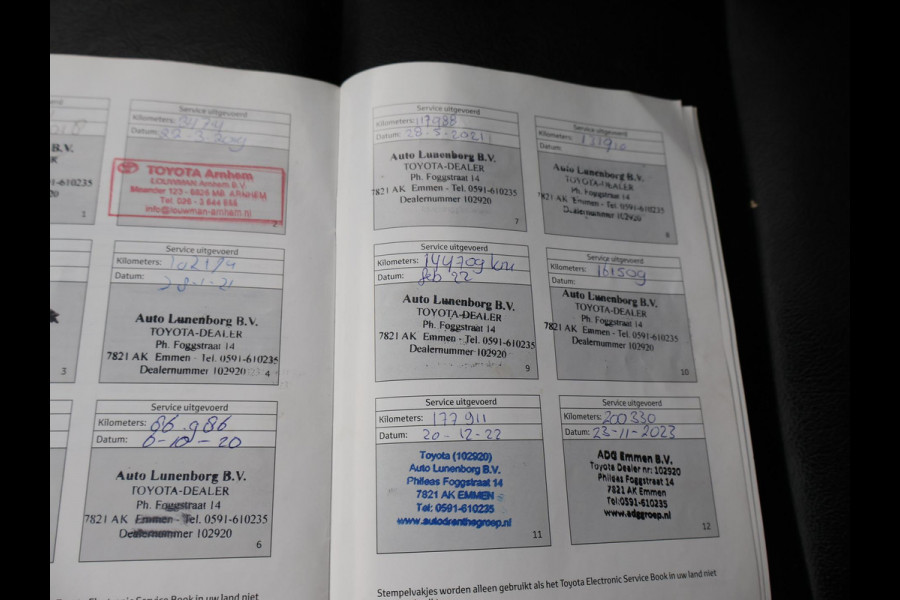 Service uitgevoerd
Kilometers:
Datum:
TOYOTA Arnhem
LOUWMAN Arnhem B.V.
Meander 123 - 6825 MB ARNHEM
Tel. 026 - 3 644 888
info@louwman-arnhem.nl
B.V.
0591-610235
1
Service uitgevoerd
Kilometers: 102174
Datum: 28-1-21
Auto Lunenborg B.V.
TOYOTA-DEALER
Ph. Foggstraat 14
7821 AK Emmen - Tel. 0591-610235
Dealernummer 102920
4
3
Service uitgevoerd
Kilometers: 86.986
Datum: 6-10-20
Auto Lunenborg B.V.
TOYOTA-DEALER
Ph. Foggstraat 14
7821 AK Emmen - Tel. 0591-610235
Dealernummer 102920
6
Service uitgevoerd
Kilometers: 117988
Datum: 28-5-2021
Auto Lunenborg B.V.
TOYOTA-DEALER
Ph. Foggstraat 14
7821 AK Emmen - Tel. 0591-610235
Dealernummer 102920
7
Service uitgevoerd
Kilometers: 131910
Datum:
Auto Lunenborg B.V.
TOYOTA-DEALER
Ph. Foggstraat 14
7821 AK Emmen - Tel. 0591-610235
Dealernummer 102920
8
Service uitgevoerd
Kilometers: 144709 km
Datum: feb '22
Auto Lunenborg B.V.
TOYOTA-DEALER
Ph. Foggstraat 14
7821 AK Emmen - Tel. 0591-610235
Dealernummer 102920
9
Service uitgevoerd
Kilometers: 161509
Datum:
Auto Lunenborg B.V.
TOYOTA-DEALER
Ph. Foggstraat 14
7821 AK Emmen - Tel. 0591-610235
Dealernummer 102920
10
Service uitgevoerd
Kilometers: 177911
Datum: 20-12-22
Toyota (102920)
Auto Lunenborg B.V.
Phileas Foggstraat 14
7821 AK EMMEN
Tel: 0591-610235
www.autodrenthegroep.nl
11
Service uitgevoerd
Kilometers: 200330
Datum: 23-11-2023
ADG Emmen B.V.
Toyota Dealer nr: 102920
Phileas Foggstraat 14
7821 AK Emmen
Tel:0591-610235
www.adggroep.nl
12
Stempelvakjes worden alleen gebruikt als het Toyota Electronic Service Book in uw land niet